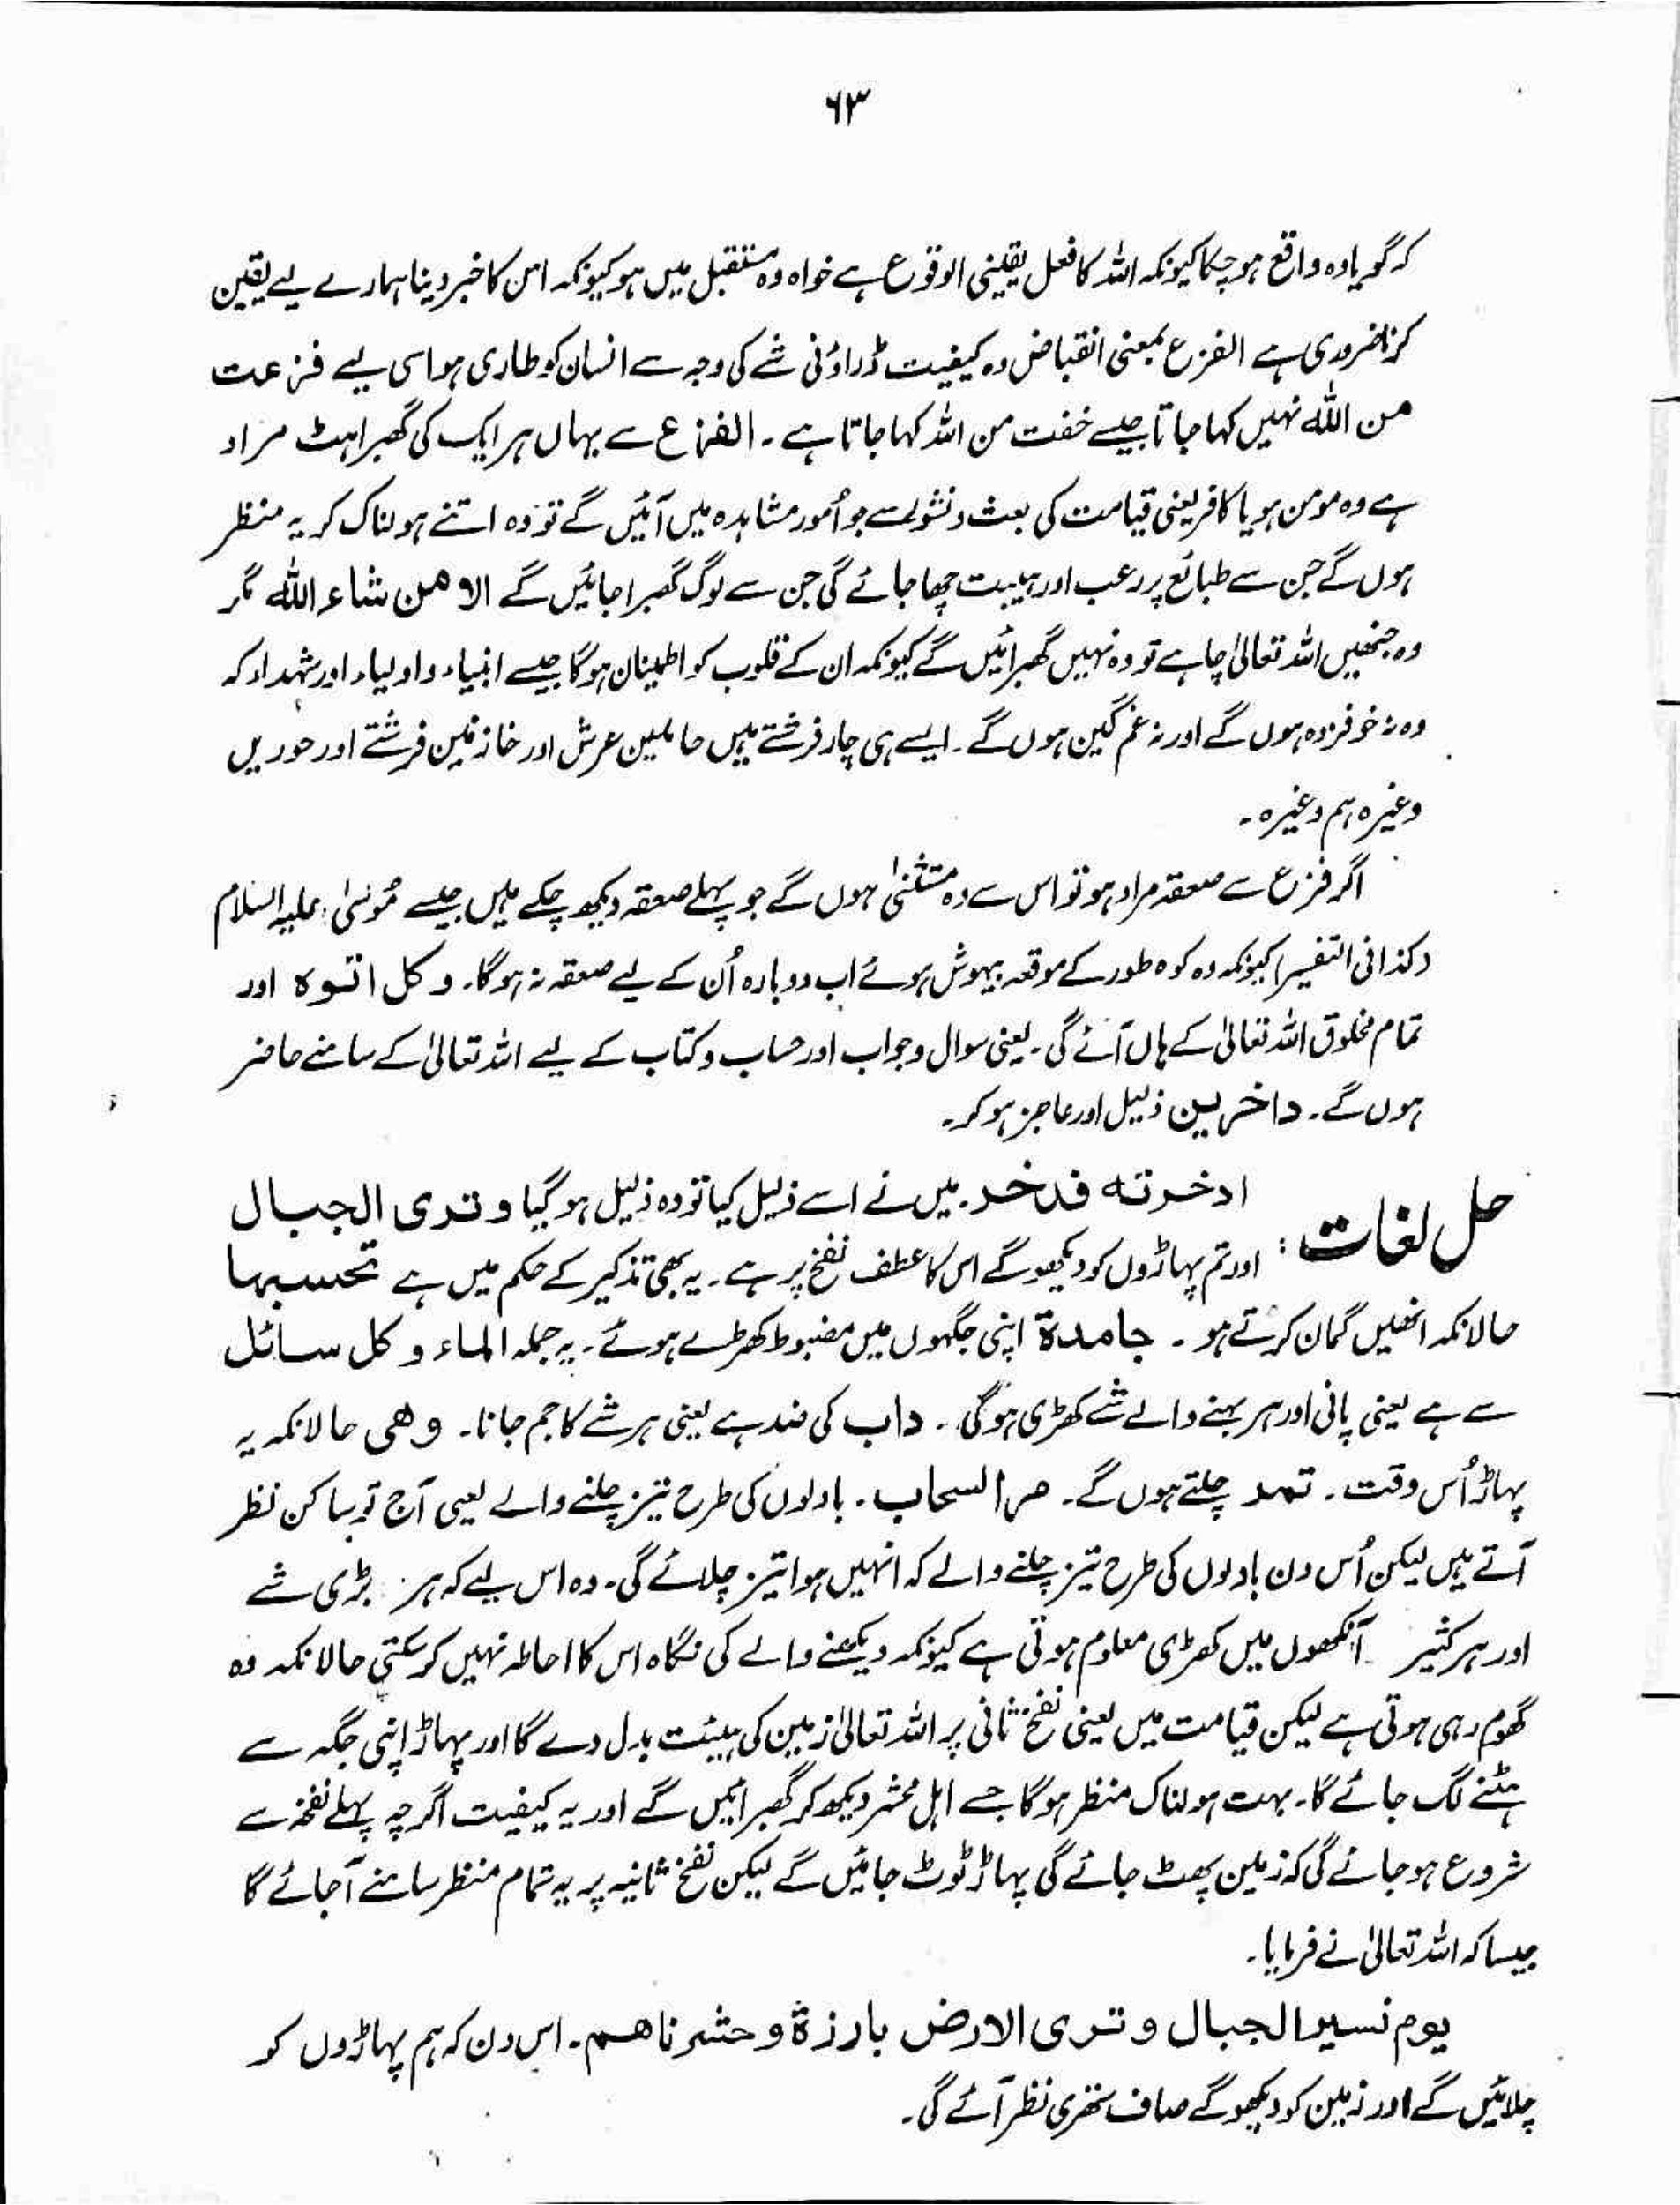 ۶۳
کہ گویا وہ واقع ہو چکا کیونکہ اللہ کا فعل یقینی الوقوع ہے خواہ وہ مستقبل میں ہو کیونکہ اس کا خبر دینا ہمارے لیے یقین
کرنا ضروری ہے الفزع بمعنی انقباض وہ کیفیت ڈراؤنی شے کی وجہ سے انسان کو طاری ہو اسی لیے فزعت
من اللہ نہیں کہا جاتا جیسے خفت من اللہ کہا جاتا ہے ۔ الفزع سے یہاں ہر ایک کی گھبراہٹ مراد
ہے وہ مومن ہو یا کافر یعنی قیامت کی بعث و نشور سے جو اُمور مشاہدہ میں آئیں گے تو وہ اتنے ہولناک کریہ منظر
ہوں گے جن سے طبائع پر رعب اور ہیبت چھا جائے گی جن سے لوگ گھبرا جائیں گے الا من شاء اللہ مگر
وہ جنھیں اللہ تعالیٰ چاہے تو وہ نہیں گھبرائیں گے کیونکہ ان کے قلوب کو اطمینان ہوگا جیسے انبیاء و اولیاء اور شہداء کہ
وہ نہ خوفزدہ ہوں گے اور نہ غم گین ہوں گے ۔ ایسے ہی چار فرشتے ہیں حاملین عرش اور خازنین فرشتے اور حوریں
وغیرہ ہم وغیرہ ۔
اگر فزع سے صعقہ مراد ہو تو اس سے وہ مستثنیٰ ہوں گے جو پہلے صعقہ دیکھ چکے ہیں جیسے مُوسیٰ علیہ السلام
(کذا فی التفسیر) کیونکہ وہ کوہ طور کے موقعہ بیہوش ہوئے اب دوبارہ اُن کے لیے صعقہ نہ ہوگا ۔ و کل اتوہ اور
تمام مخلوق اللہ تعالیٰ کے ہاں آئے گی ۔ یعنی سوال و جواب اور حساب و کتاب کے لیے اللہ تعالیٰ کے سامنے حاضر
ہوں گے ۔ داخرین ذلیل اور عاجز ہو کر ۔
حل لغات : ادخرتہ فدخر ۔ میں نے اسے ذلیل کیا تو وہ ذلیل ہو گیا و تری الجبال
اور تم پہاڑوں کو دیکھو گے اس کا عطف نفخ پر ہے ۔ یہ بھی تذکیر کے حکم میں ہے تحسبہا
حالانکہ انھیں گمان کرتے ہو ۔ جامدۃ اپنی جگہوں میں مضبوط کھڑے ہوئے ۔ یہ جملہ الماء و کل سائل
سے ہے یعنی پانی اور ہر بہنے والے شے کھڑی ہوگی ۔ داب کی ضد ہے یعنی ہر شے کا جم جانا ۔ وھی حالانکہ یہ
پہاڑ اُس وقت ۔ تمر چلتے ہوں گے ۔ مر السحاب ۔ بادلوں کی طرح تیز چلنے والے یعنی آج تو ساکن نظر
آتے ہیں لیکن اُس دن بادلوں کی طرح تیز چلنے والے کہ انہیں ہوا تیز چلائے گی ۔ وہ اس لیے کہ ہر بڑی شے
اور ہر کثیر آنکھوں میں کھڑی معلوم ہوتی ہے کیونکہ دیکھنے والے کی نگاہ اس کا احاطہ نہیں کر سکتی حالانکہ وہ
گھوم رہی ہوتی ہے لیکن قیامت میں یعنی نفخ ثانی پر اللہ تعالیٰ زمین کی ہیئت بدل دے گا اور پہاڑ اپنی جگہ سے
ہٹنے لگ جائے گا ۔ بہت ہولناک منظر ہوگا جسے اہل محشر دیکھ کر گھبرائیں گے اور یہ کیفیت اگرچہ پہلے نفخہ سے
شروع ہو جائے گی کہ زمین پھٹ جائے گی پہاڑ ٹوٹ جائیں گے لیکن نفخ ثانیہ پر یہ تمام منظر سامنے آ جائے گا
جیسا کہ اللہ تعالیٰ نے فرمایا ۔
یوم نسیر الجبال و تری الارض بارزۃ و حشرناھم ۔ اس دن کہ ہم پہاڑوں کو
چلائیں گے اور زمین کو دیکھو گے صاف ستھری نظر آئے گی ۔